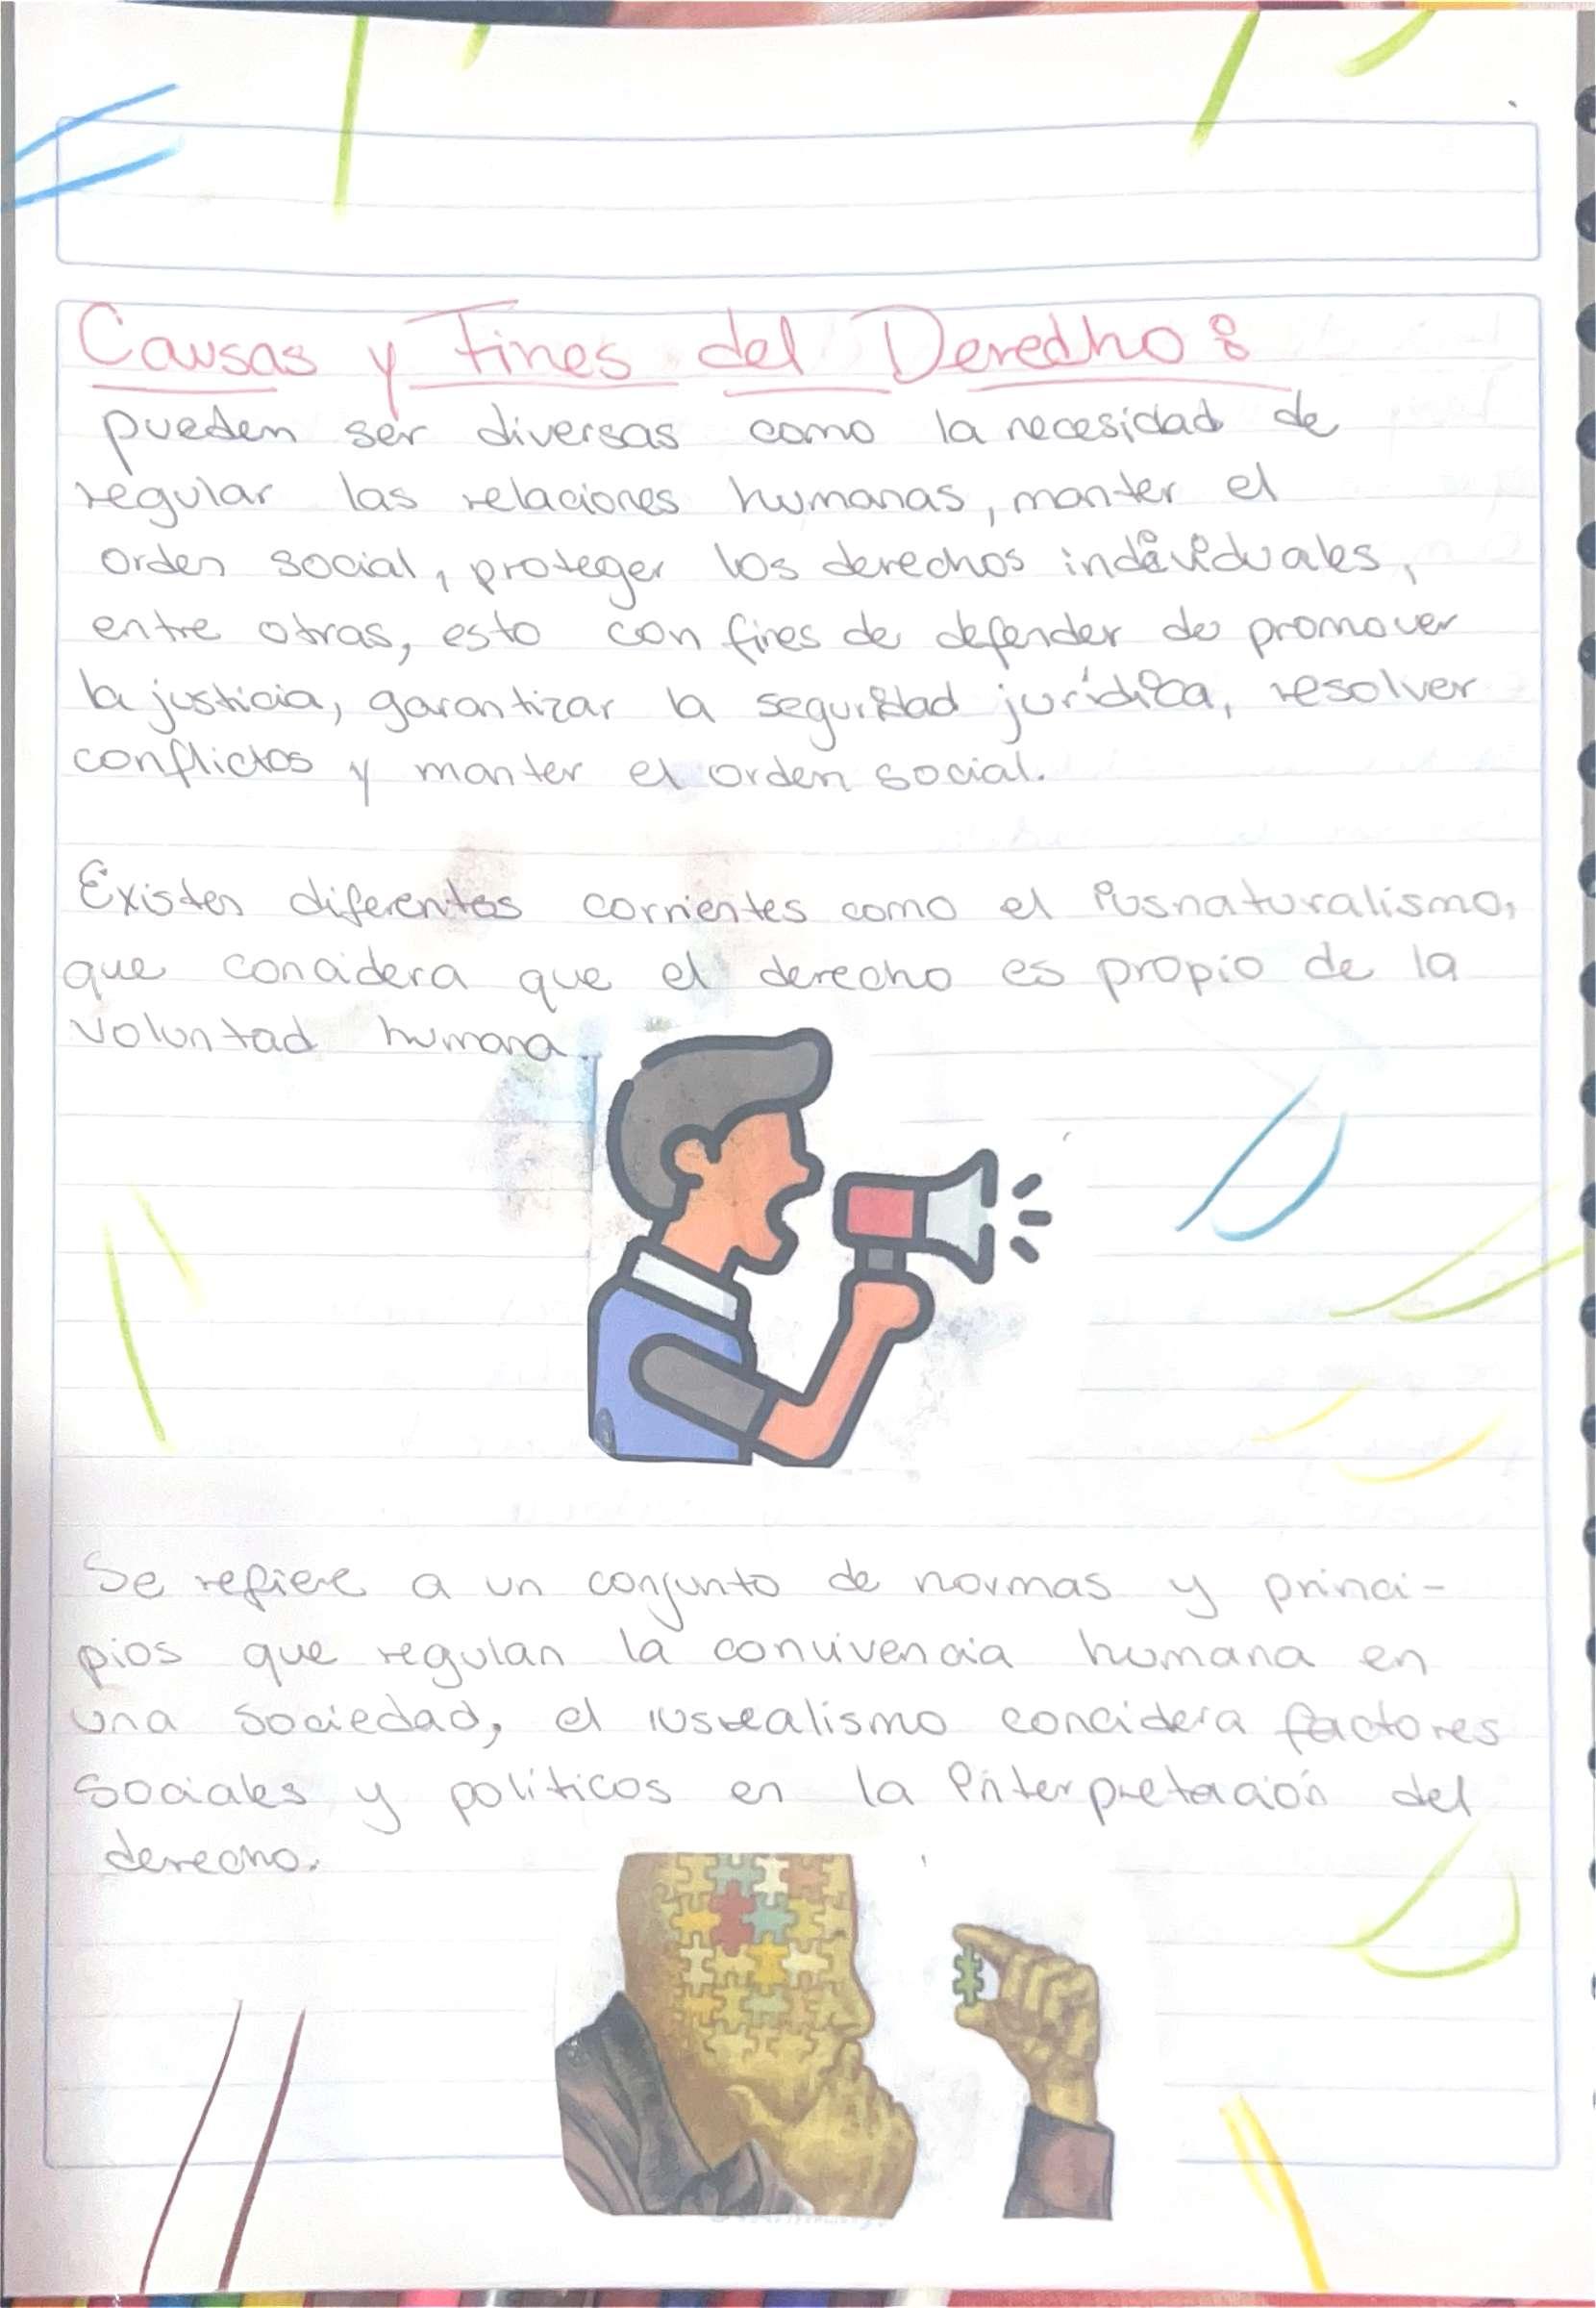 Causas y Fines del Deredho:
pueden ser diversas como la necesidad de
regular las relaciones humanas, manter el
orden social, proteger los derechos individuales,
entre otras, esto con fines de defender de promover
la justicia, garantizar la seguridad jurídica, resolver
conflictos y manter el orden social.
Existen diferentes corrientes como el iusnaturalismo,
que concidera que el derecho es propio de la
voluntad humana.
Se refiere a un conjunto de normas y princi-
pios que regulan la convivencia humana en
una sociedad, el iusrealismo concidera factores
sociales y políticos en la interpretación del
derecho.